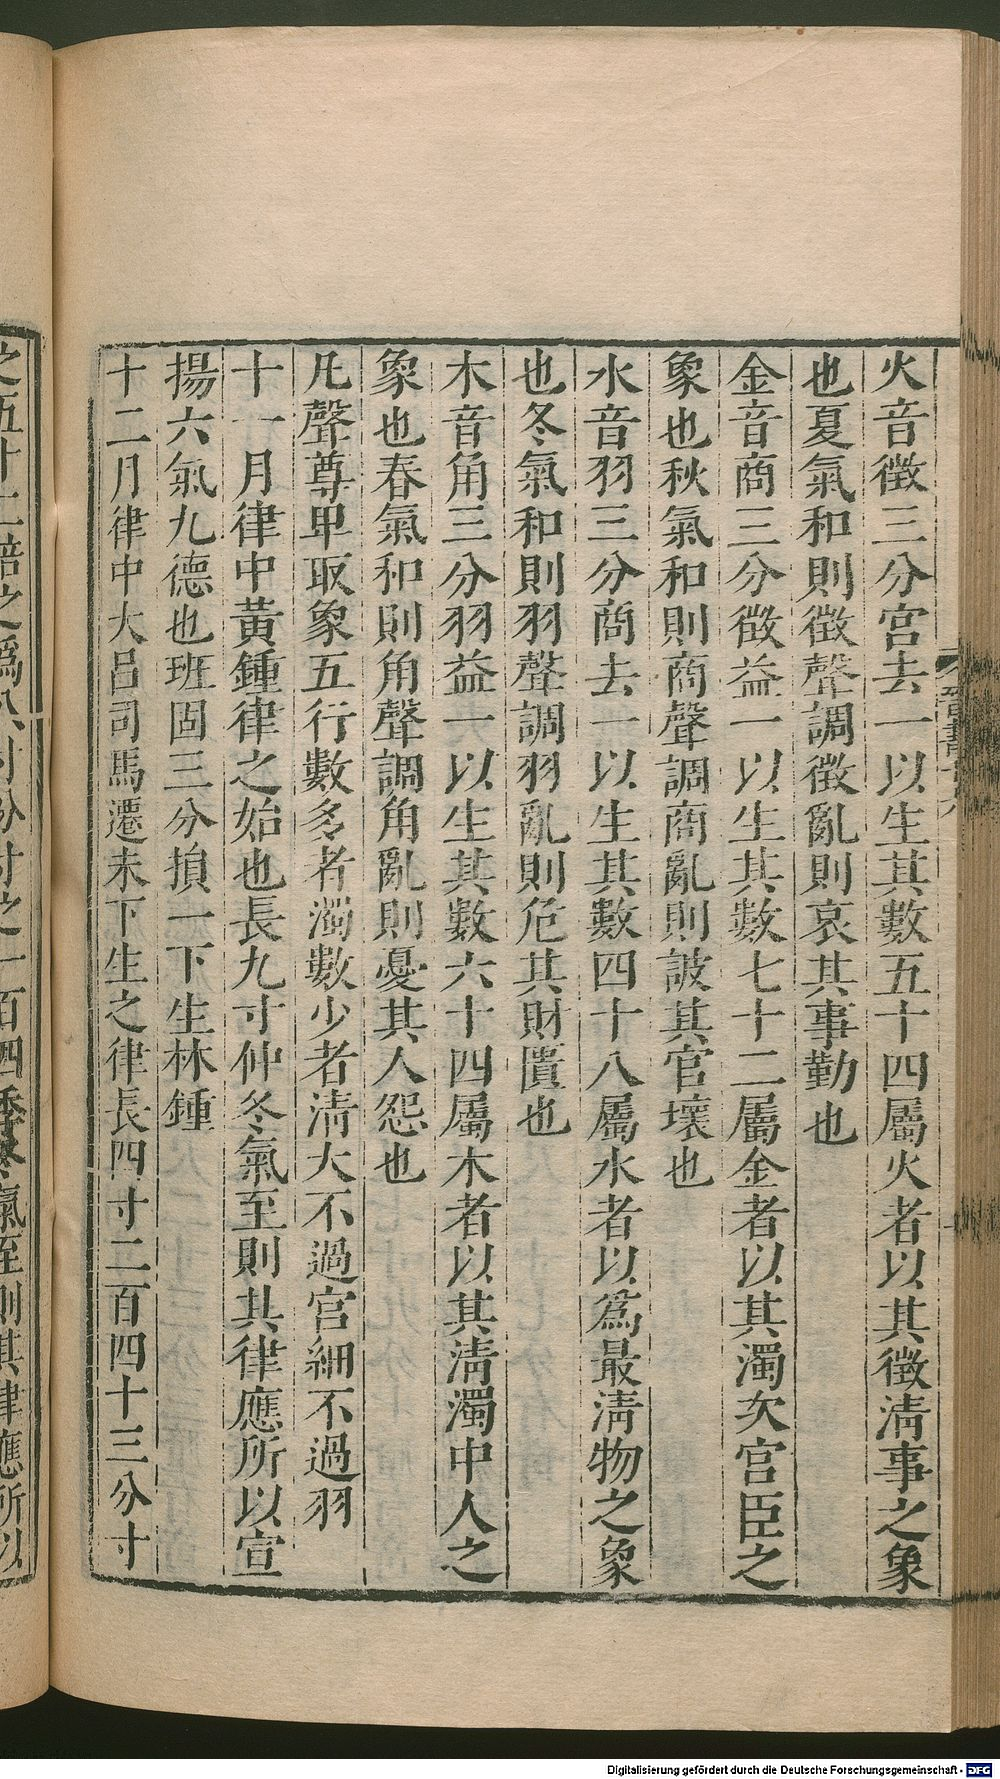 火音徵三分宮去一以生其數五十四屬火者以其徵清事之象
也夏氣和則徵聲調徵亂則哀其事勤也
金音商三分徵益一以生其數七十二屬金者以其濁次宮臣之
象也秋氣和則商聲調商亂則詖其官壞也
水音羽三分商去一以生其數四十八屬水者以爲最清物之象
也冬氣和則羽聲調羽亂則危其財匱也
木音角三分羽益一以生其數六十四屬木者以其清濁中人之
象也春氣和則角聲調角亂則憂其人怨也
凡聲尊卑取象五行數多者濁數少者清大不過宮細不過羽
十一月律中黃鍾律之始也長九寸仲冬氣至則其律應所以宣
揚六氣九德也班固三分損一下生林鍾
十二月律中大呂司馬遷未下生之律長四寸二百四十三分寸
之五十二倍之爲八寸分寸之一百四季冬氣至則其律應所以
Digitalisierung gefördert durch die Deutsche Forschungsgemeinschaft - DFG